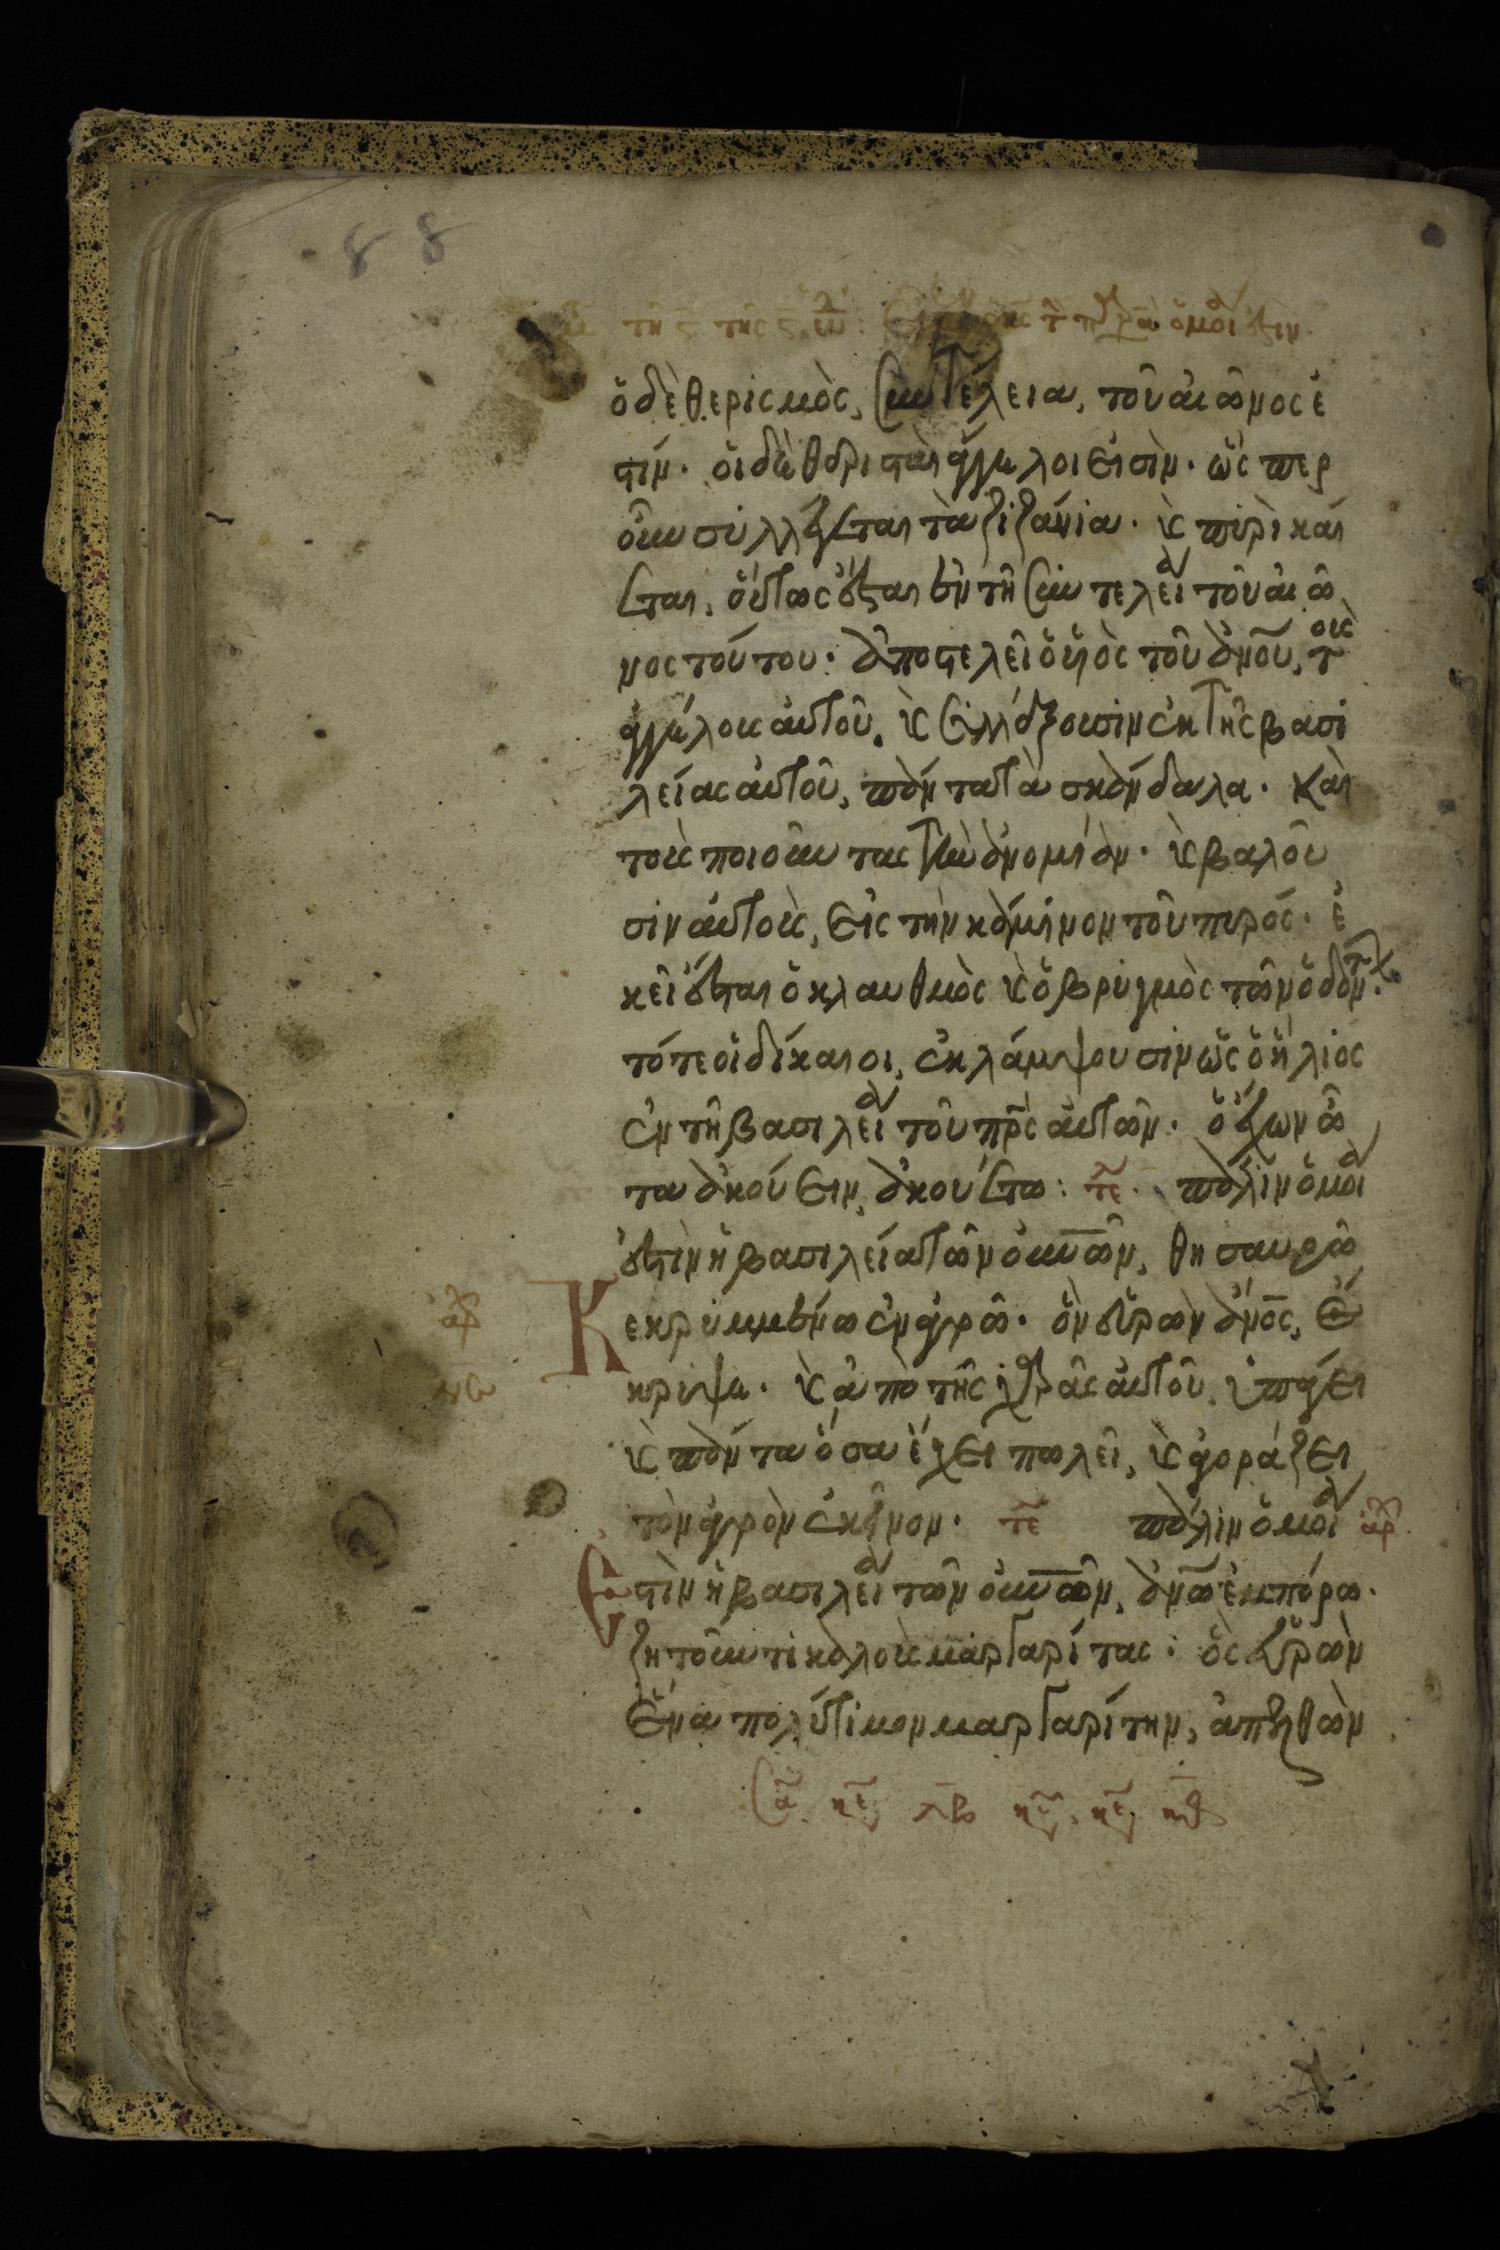 88
τη ς τῆς ϛ ὁμοι ἐστιν
ὁ δὲ θερισμὸς, συντέλεια, τοῦ αἰῶνος ἐ
στίν. οἱ δὲ θερισταὶ ἄγγελοι εἰσὶν. ὥσπερ
οὖν συλλέγεται τὰ ζιζάνια. κ πυρὶ καί
εται, οὕτως ἔσται ἐν τῆ συντελεία τοῦ αἰῶ
νος τούτου. ἀποστελεῖ ὁ υἱὸς τοῦ ἀνου, τοὺς
ἀγγέλους αὐτοῦ, κ συλλέξουσιν ἐκ τῆς βασι
λείας αὐτοῦ, πάντα τὰ σκάνδαλα. καὶ
τοὺς ποιοῦντας τὴν ἀνομίαν. κ βαλοῦ
σιν αὐτοὺς, εἰς τὴν κάμινον τοῦ πυρός. ἐ
κεῖ ἔσται ὁ κλαυθμὸς κ ὁ βρυγμὸς τῶν ὀδόντων.
τότε οἱ δίκαιοι, ἐκλάμψουσιν ὡς ὁ ἥλιος
ἐν τῆ βασιλεία τοῦ πρς αὐτῶν. ὁ ἔχων ὦ
τα ἀκούειν, ἀκουέτω: τε πάλιν ὁμοία
ἐστὶν ἡ βασιλεία τῶν οὐνων, θησαυρῶ
ἀρ
Κεκρυμμένω ἐν ἀγρῶ. ὃν εὑρὼν ἀνος, ἔ
κρυψε. κ ἀπὸ τῆς χαρᾶς αὐτοῦ, ὑπάγει
κ πάντα ὅσα ἔχει πωλεῖ, κ ἀγοράζει
τὸν ἀγρὸν ἐκεῖνον. τε πάλιν ὁμοία ἀρ
Ἐστὶν ἡ βασιλεία τῶν οὐνων, ἀνω ἐμπόρω.
ζητοῦντι καλοὺς μαργαρίτας· ὃς εὑρὼν
ἕνα πολύτιμον μαργαρίτην, ἀπελθὼν